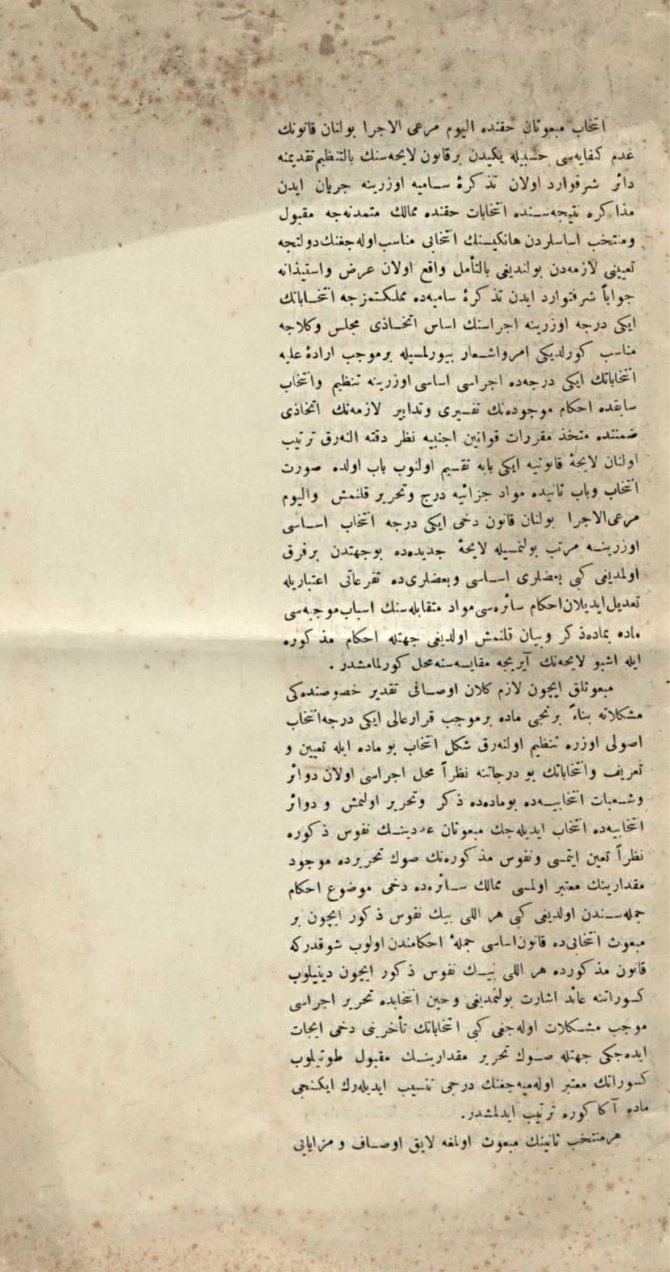 انتخاب مبعوثان حقنده الیوم مرعی الاجرا بولنان قانونك
عدم كفایه‌سی حسبیله یكیدن برقانون لایحه‌سنك بالتنظیم تقدیمنه
دائر شرفوارد اولان تذكرۀ سـامیه اوزرینه جریان ایدن
مذاكره نتیجه‌سـنده انتخابات حقنده ممالك متمدنه‌جه مقبول
ومنتخب اساسلردن هانكیسنك انتخابی مناسب اوله‌جغنك دولتجه
تعیینی لازمه‌دن بولندیغی بالتأمل واقع اولان عرض واستیذانه
جواباً شرفتوارد ایدن تذكرۀ سامیه‌ده مملكتمزجه انتخـاباتك
ایكی درجه اوزرینه اجراسنك اساس اتخـاذی مجلس وكلاجه
مناسب كورلدیكی امرواشـعار بیورلمسیله برموجب ارادۀ علیه
انتخاباتك ایكی درجه‌ده اجراسی اساسی اوزرینه تنظیم وانتخاب
سابقده احكام موجوده‌نك تفسیری وتدابیر لازمه‌نك اتخاذی
ضمننده متخذ مقررات قوانین اجنبیه نظر دقته النه‌رق ترتیب
اولنان لایحۀ قانونیه ایكی بابه تقسیم اولنوب باب اولده صورت
انتخاب وباب ثانیده مواد جزائیه درج وتحریر قلنمش والیوم
مرعی‌الاجرا بولنان قانون دخی ایكی درجه انتخاب اسـاسی
اوزرینـه مرتب بولنمسیله لایحۀ جدیده‌ده بوجهتدن برفرق
اولمدیغی كبی بعضلری اساسی وبعضلری‌ده تفرعاتی اعتباریله
تعدیل ایدیلان احكام سائره‌سی مواد متقابله‌سنك اسباب موجبه‌سی
ماده بماده‌ذكر وبیان قلنمش اولدیغی جهتله احكام مذكوره
ایله اشبو لایحه‌نك آیریجه مقایسه‌سنه محل كورلمامشدر .
مبعوثلق ایچون لازم كلان اوصـافی تقدیر خصوصنده‌كی
مشكلاته بناءً برنجی ماده برموجب قرارعالی ایكی درجه‌انتخاب
اصولی اوزره تنظیم اولنه‌رق شكل انتخاب بو ماده ایله تعیین و
تعریف وانتخاباتك بو درجاتنه نظراً محل اجراسی اولان دوائر
وشـعبات انتخابیـه‌ده بوماده‌ده ذكر وتحریر اولنمش و دوائر
انتخابیه‌ده انتخاب ایدیله‌جك مبعوثان عددینـك نفوس ذكوره
نظراً تعین ایتمسی ونفوس مذكوره‌نك صوك تحریرده موجود
مقدارینك معتبر اولمسی ممالك سـائره‌ده دخی موضوع احكام
جمله‌سـندن اولدیغی كبی هر اللی بیك نفوس ذكور ایچون بر
مبعوث انتخابی‌ده قانون‌اساسی جملۀ احكامندن اولوب شوقدركه
قانون مذكورده هر اللی بیـك نفوس ذكور ایچون دینیلوب
كسوراتنه عائد اشارت بولنمدیغی وحین انتخابده تحریر اجراسی
موجب مشـكلات اوله‌جغی كبی انتخاباتك تأخرینی دخی ایجات
ایده‌جكی جهتله صـوك تحریر مقدارینـك مقبول طوتیلوب
كسوراتك معتبر اوله‌میه‌جغنك درجی تنسیب ایدیله‌رك ایكنجی
ماده آكا كوره ترتیب ایدلمشدر.
هرمنتخب ثانینك مبعوث اولمغه لایق اوصـاف و مزایایی